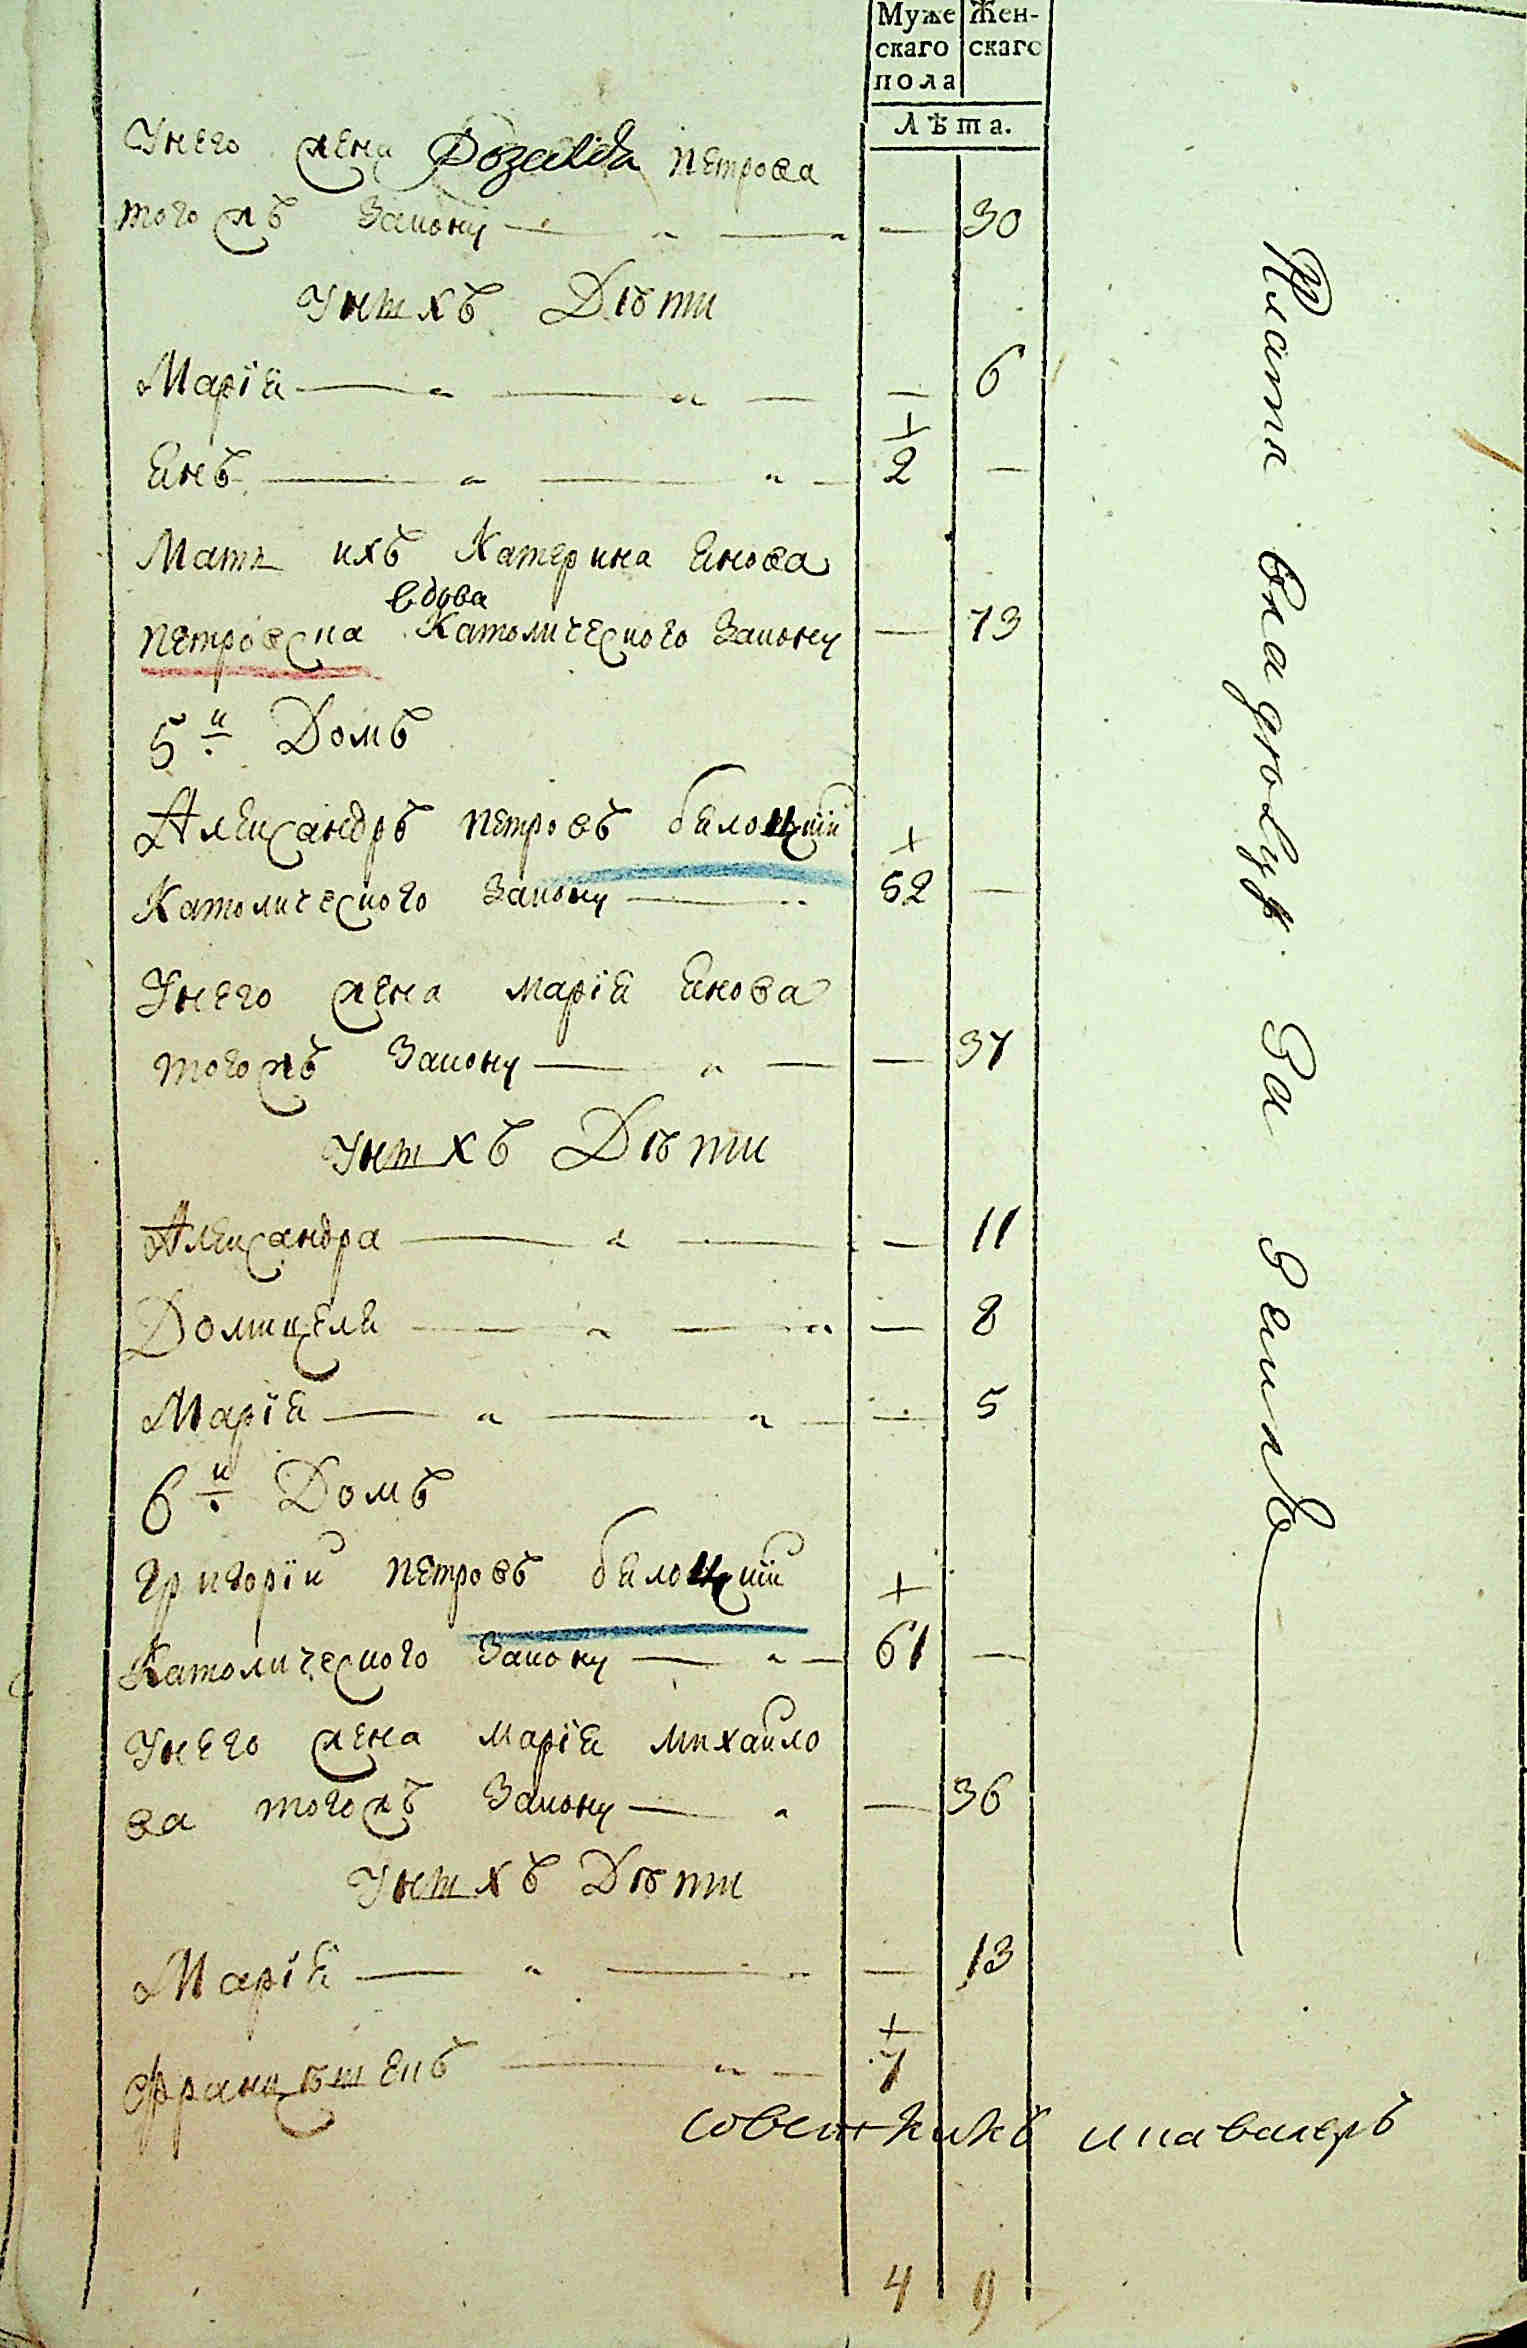 Муже скаго пола
Жен- скаго
Лѣта.
Унего жена Розалія Петрова
тогожъ Закону — 30
Унихъ Дѣти
Марія — 6
Янъ 2 —
Мать ихъ Катерина Янова
вдова
Петровска Католического Закону — 73
5й Домъ
Александръ Петровъ Белоцкій
Католического Закону 52 —
Унего жена Марія Янова
тогожъ Закону — 37
Унихъ Дѣти
Александра — 11
Домицеля — 8
Марія — 5
6й Домъ
Григорій Петровъ Белоцкій
Католического Закону 61 —
Унего жена Марія Михайло
ва тогожъ Закону — 36
Унихъ Дѣти
Марія — 13
Францѣшекъ 7
советникъ икавалеръ
4 9
Плати
За Землю